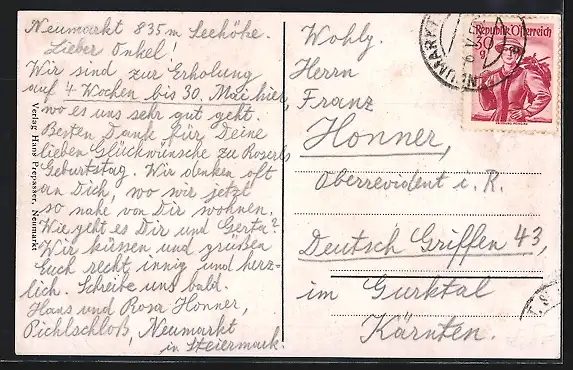 Neumarkt 835 m Seehöhe.
Lieber Onkel!
Wir sind zur Erholung
auf 4 Wochen bis 30. Mai hier,
wo es uns sehr gut geht.
Besten Dank für Deine
lieben Glückwünsche zu Roserls
Geburtstag. Wir denken oft
an Dich, wo wir jetzt
so nahe von Dir wohnen.
Wie geht es Dir und Gerta?
Wir küssen und grüßen
Euch recht innig und herz-
lich. Schreibe uns bald.
Hans und Rosa Honner,
Pichlschloß, Neumarkt
in Steiermark
Verlag Hans Prepasser, Neumarkt
Wohlg.
Herrn
Franz
Honner,
Oberrevident i. R.
Deutsch Griffen 43,
im Gurktal
Kärnten.
Republik Österreich
30
g
NEUMARKT